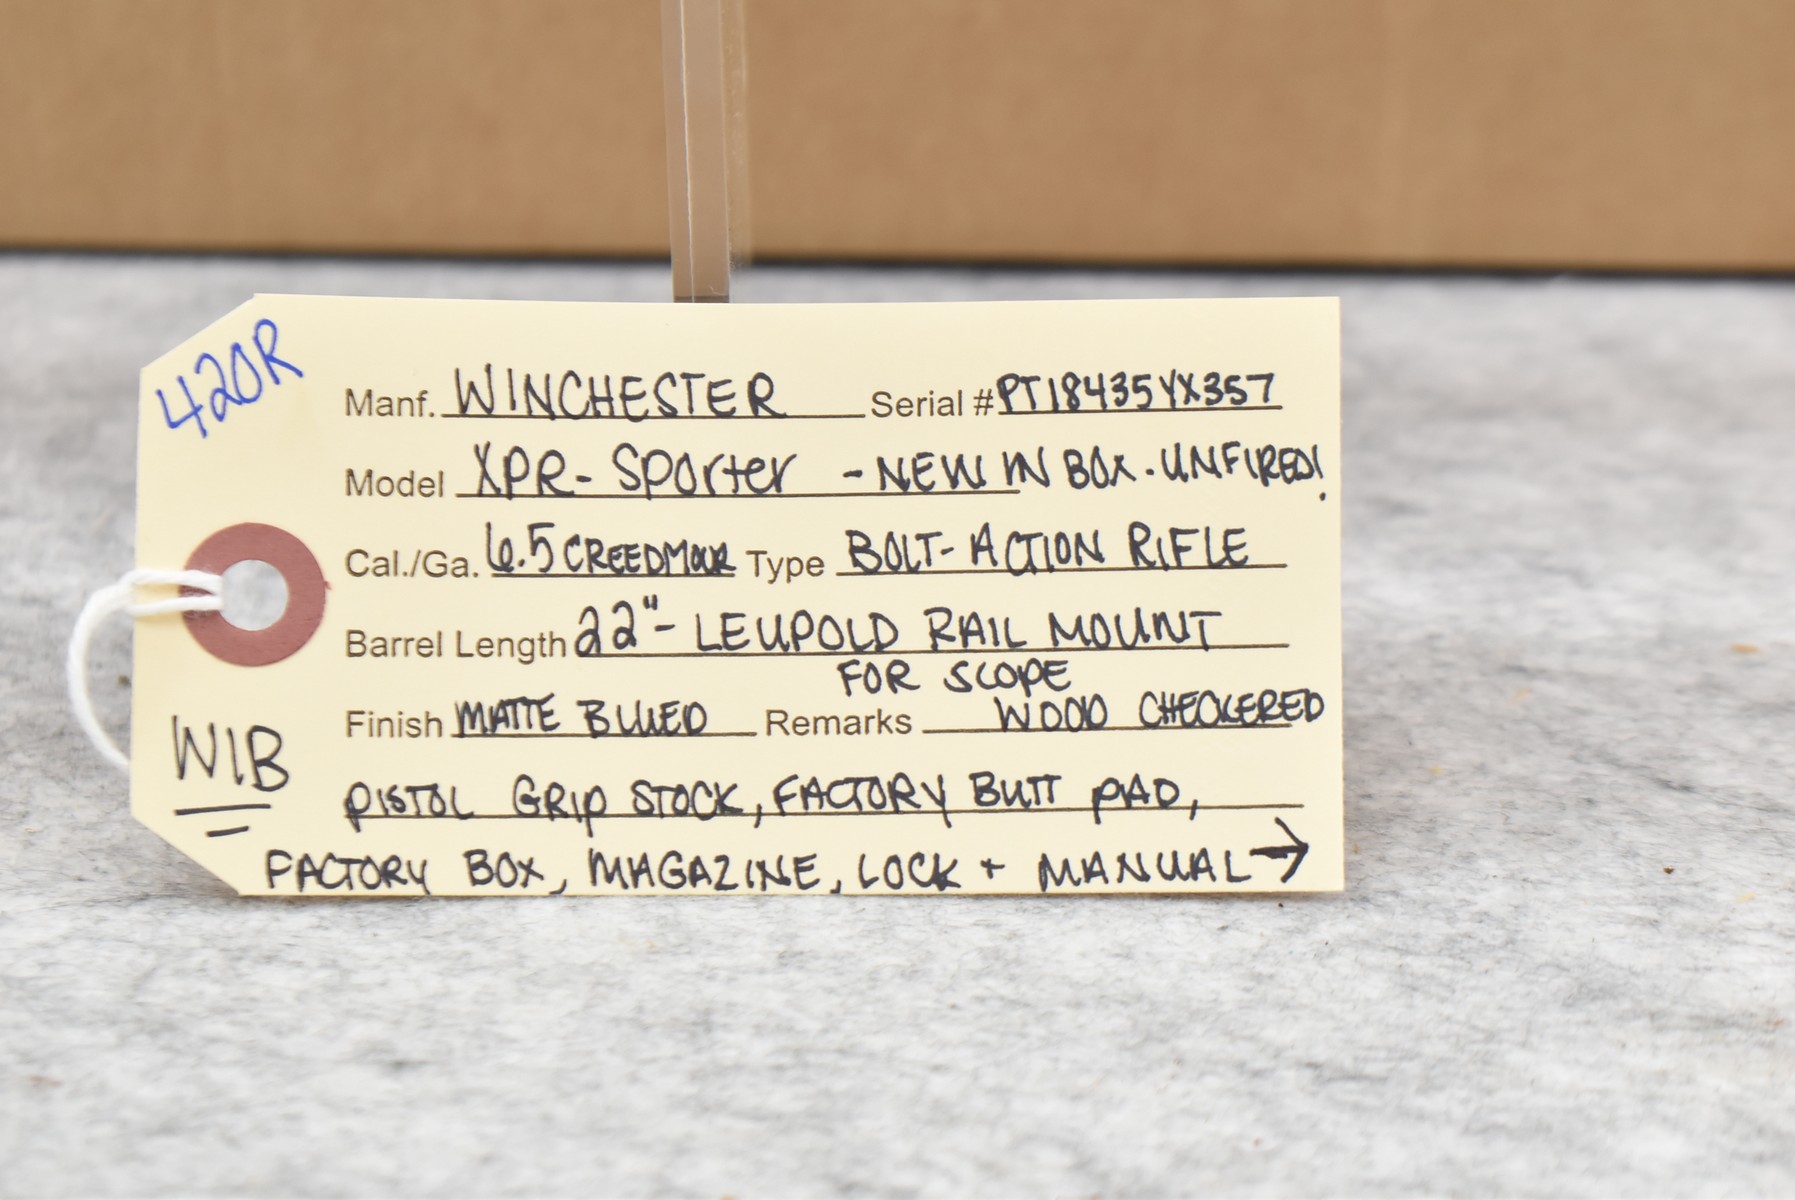 420R
Manf. WINCHESTER Serial # PT18435YX357
Model XPR- Sporter - NEW IN BOX. UNFIRED!
Cal./Ga. 6.5 CREEDMOOR Type BOLT-ACTION RIFLE
Barrel Length 22"- LEUPOLD RAIL MOUNT
FOR SCOPE
Finish MATTE BLUED Remarks WOOD CHECKERED
WIB
PISTOL GRIP STOCK, FACTORY BUTT PAD,
FACTORY BOX, MAGAZINE, LOCK + MANUAL →